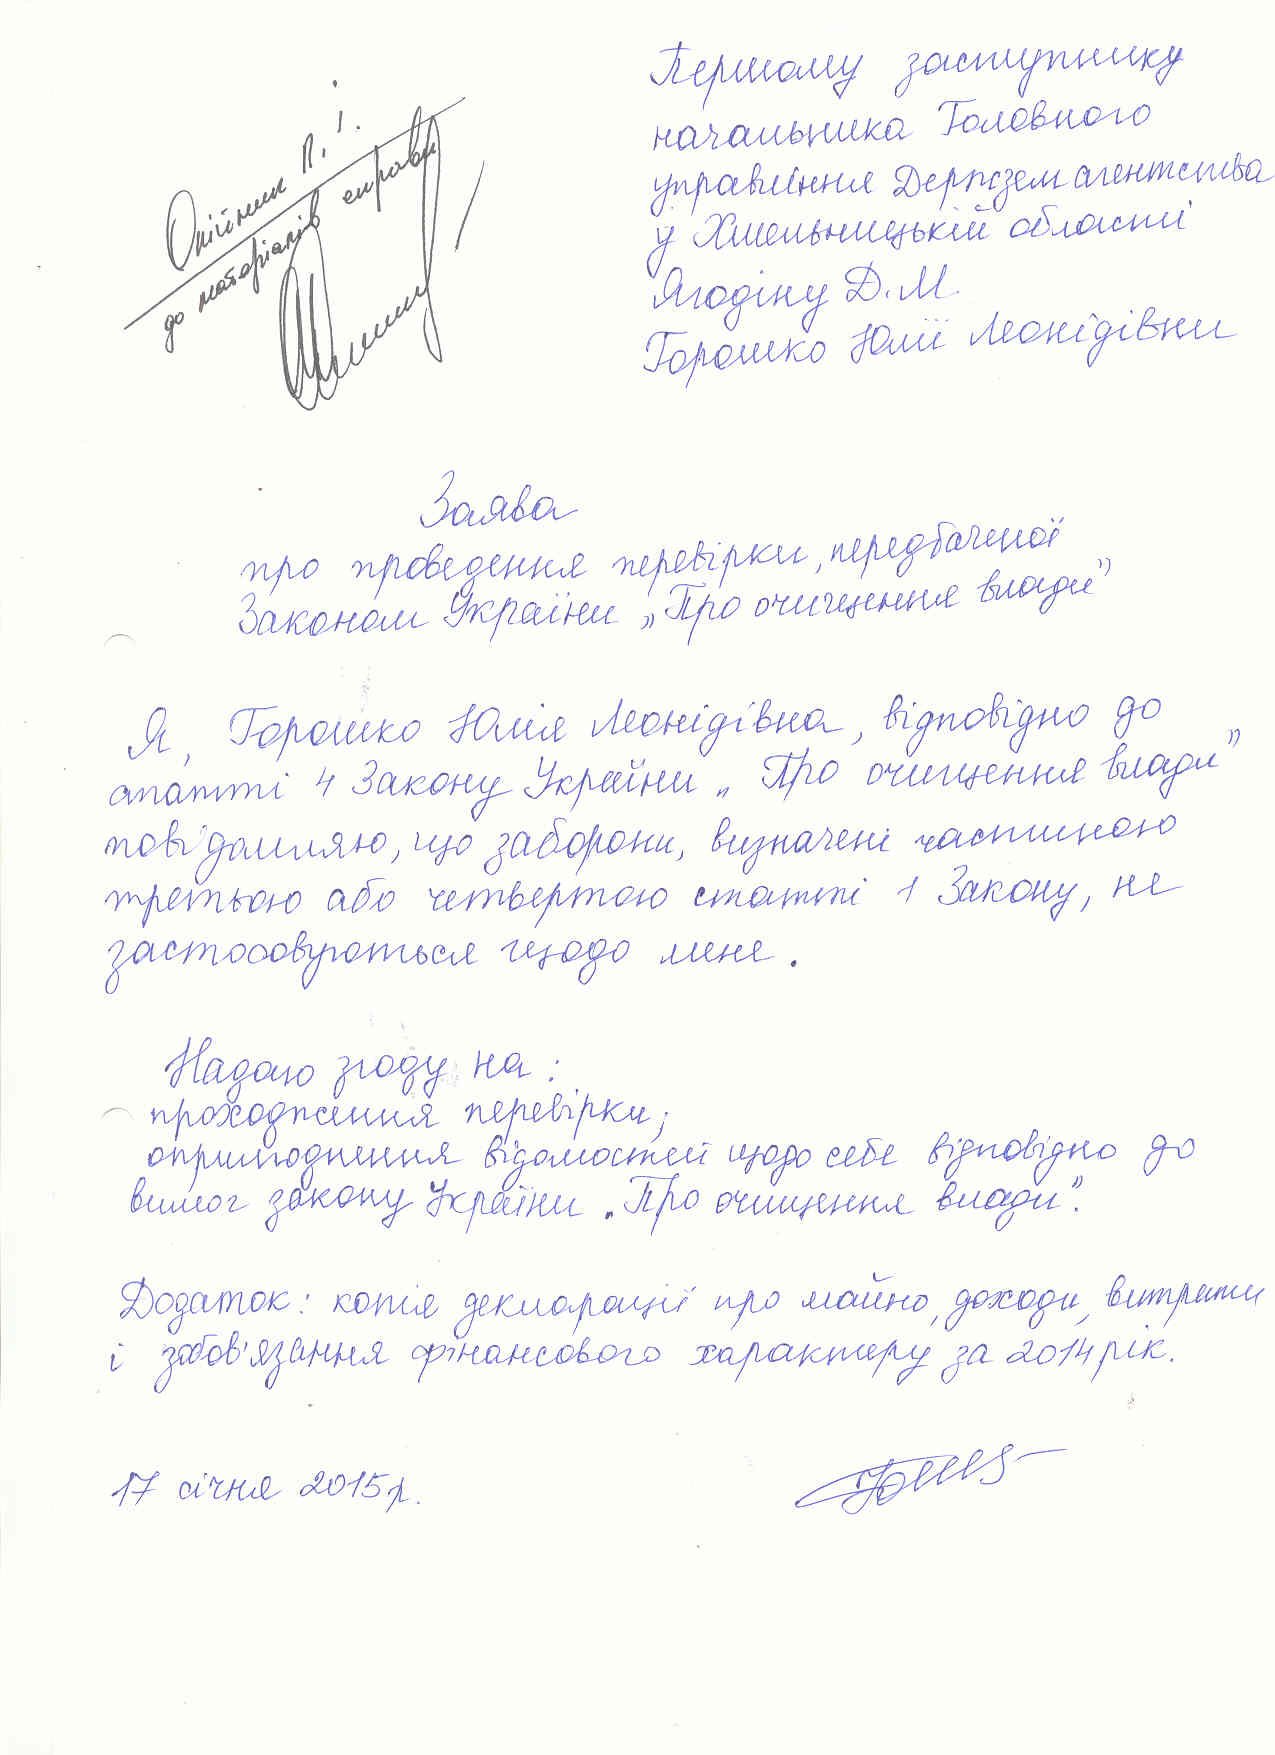 Першому заступнику
начальника Головного
управління Держземагентства
у Хмельницькій області
Ягодіну Д.М.
Горошко Юлії Леонідівни
Олійник П. І.
до матеріалів справи
Заява
про проведення перевірки, передбаченої
Законом України „Про очищення влади"
Я, Горошко Юлія Леонідівна, відповідно до
статті 4 Закону України „Про очищення влади"
повідомляю, що заборони, визначені частиною
третьою або четвертою статті 1 Закону, не
застосовуються щодо мене.
Надаю згоду на:
проходження перевірки;
оприлюднення відомостей щодо себе відповідно до
вимог закону України „Про очищення влади".
Додаток: копія декларації про майно, доходи, витрати
і зобов'язання фінансового характеру за 2014 рік.
17 січня 2015р.